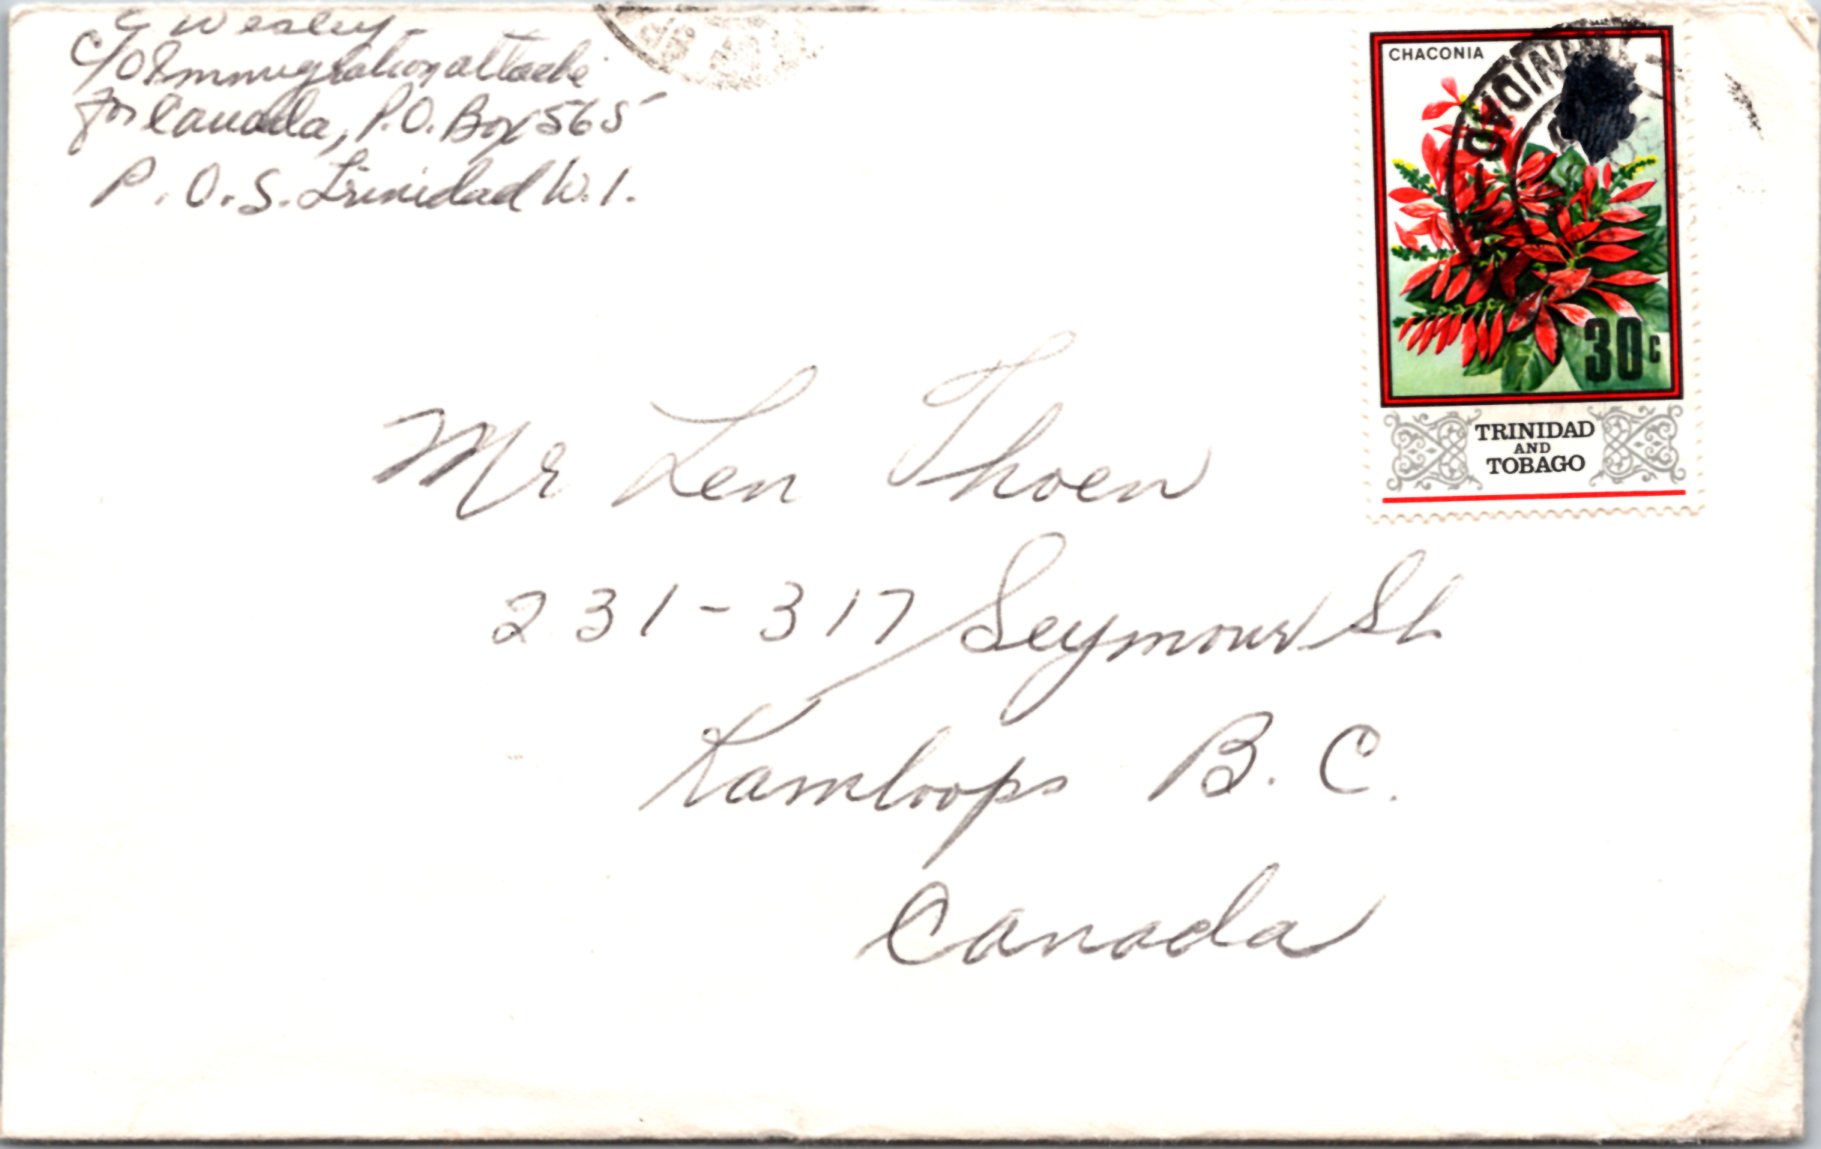 C Wesley
C/O Immigration attache
for Canada, P.O. Box 565
P.O.S. Trinidad W.I.
CHACONIA
TRINIDAD
30c
TRINIDAD
AND
TOBAGO
Mr Len Thoen
231-317 Seymour St
Kamloops B.C.
Canada